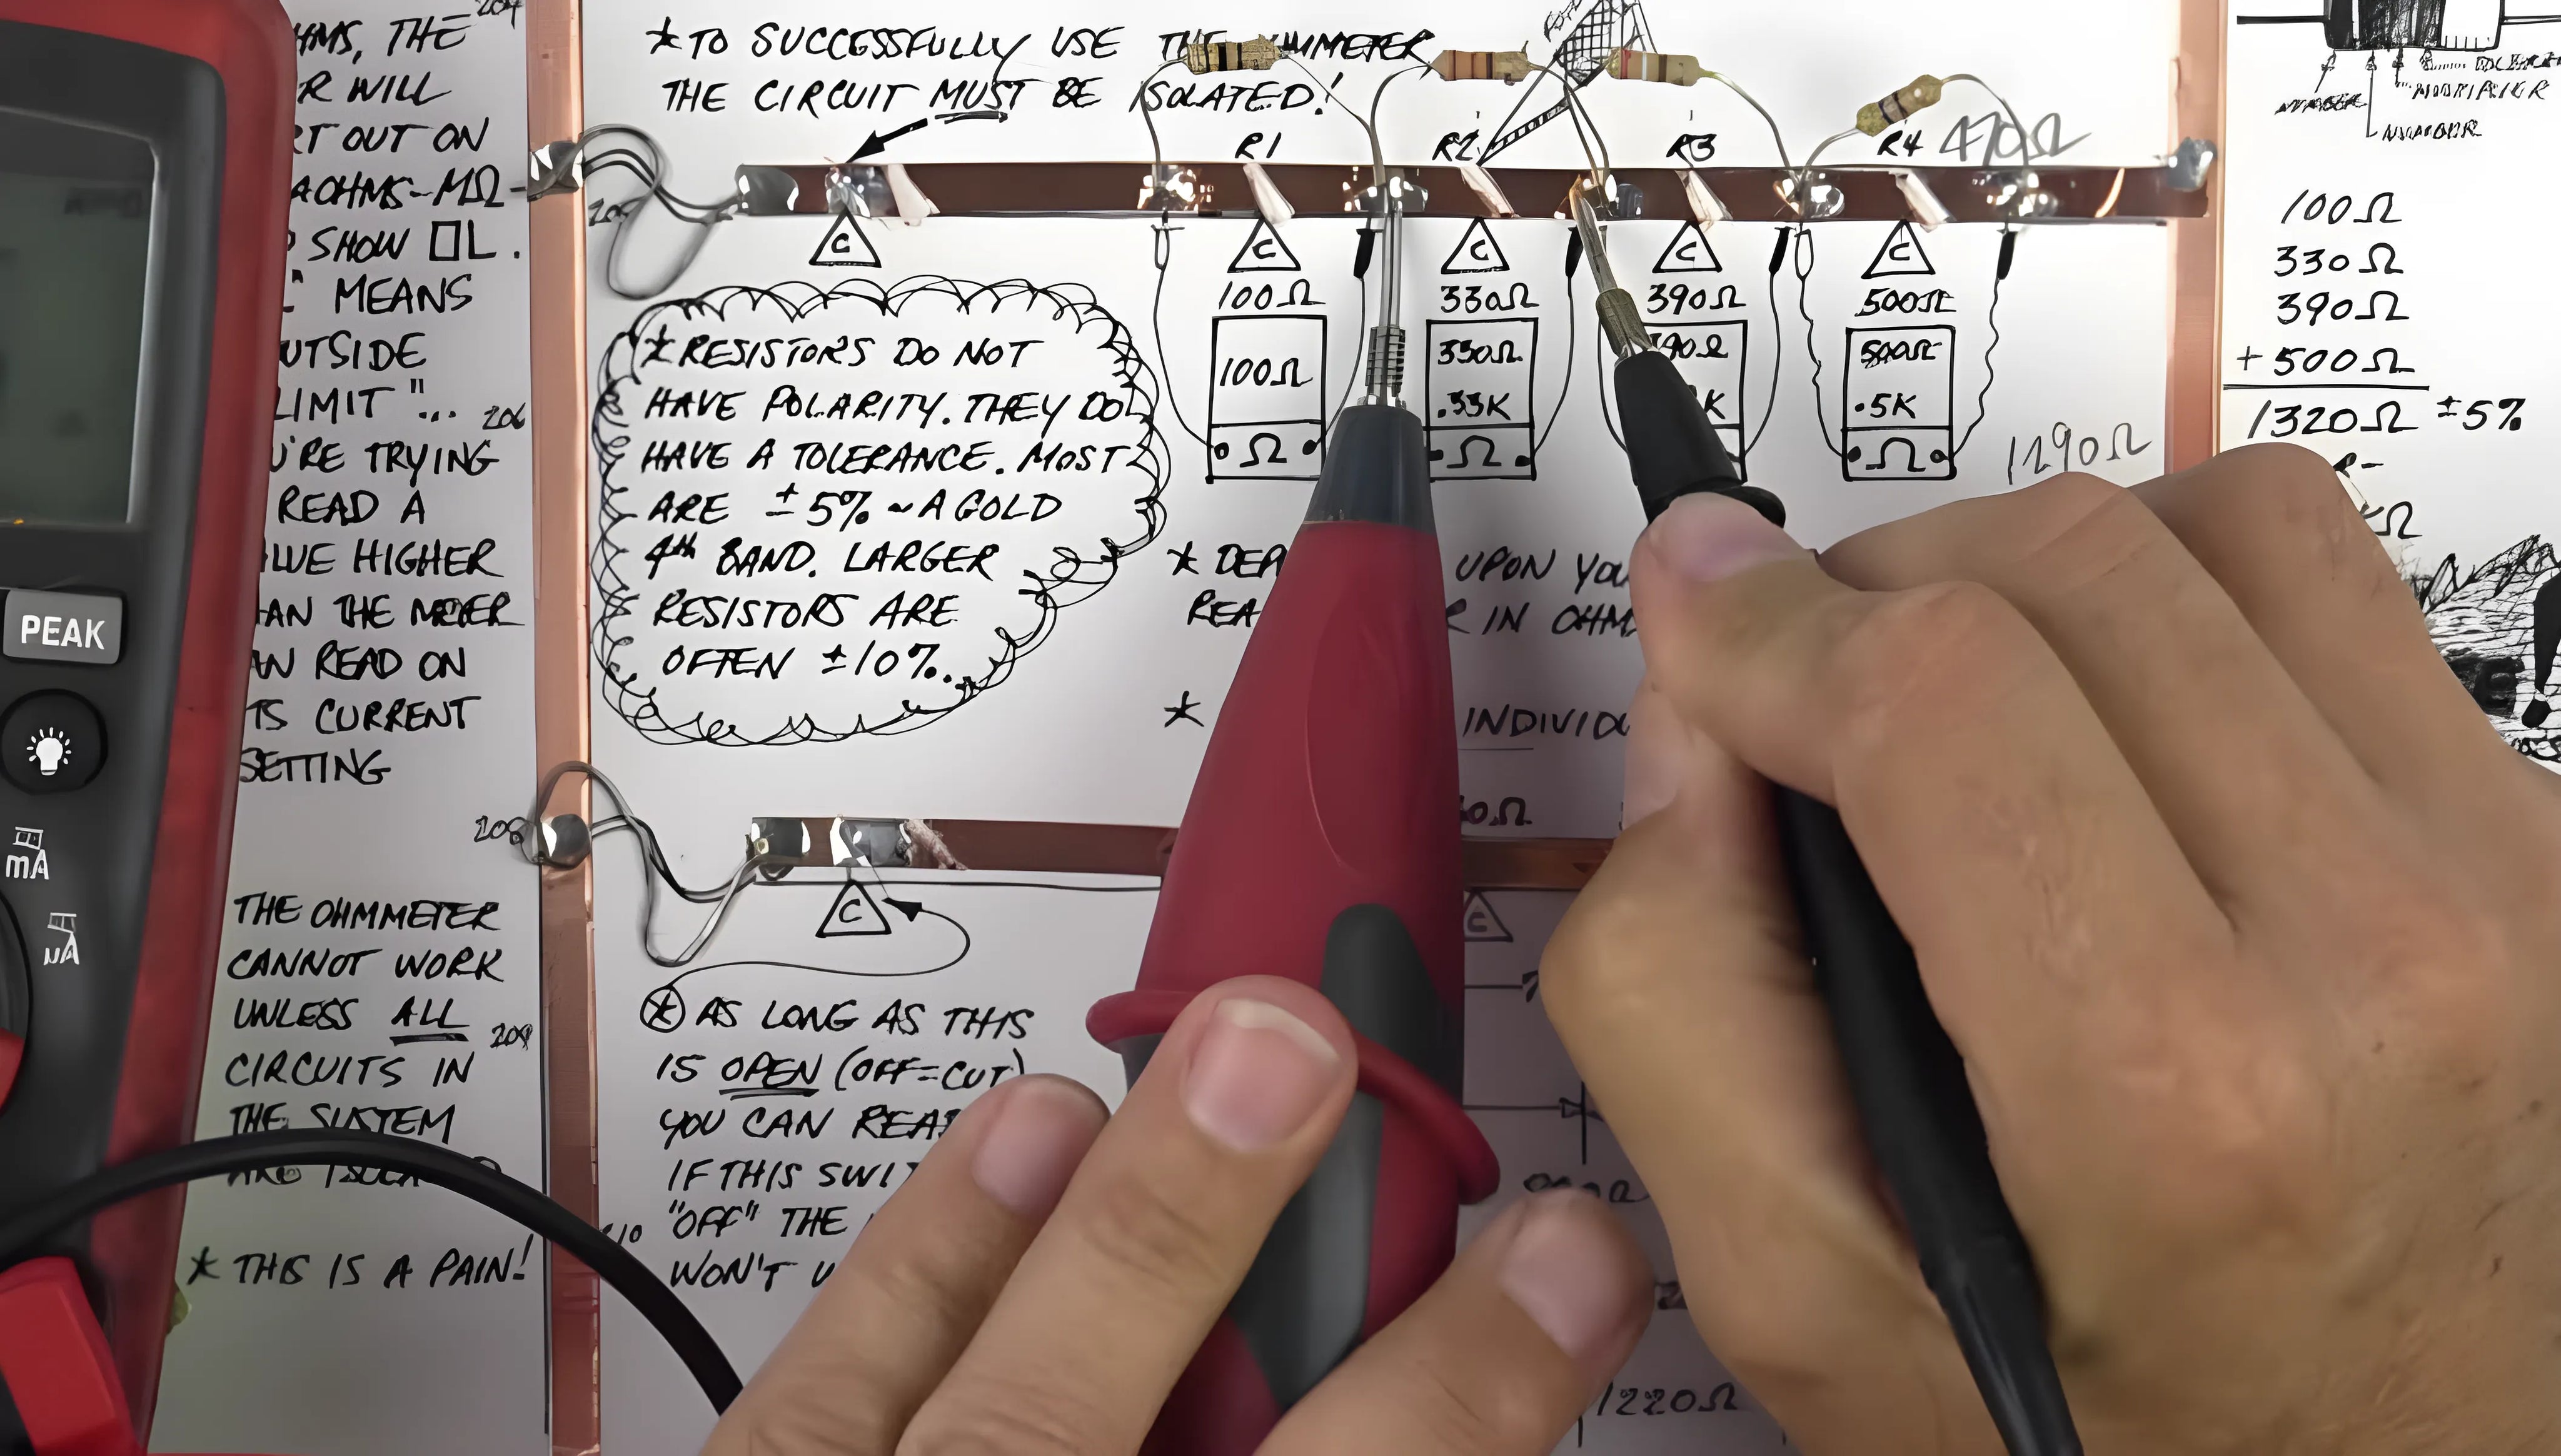 204
HMS, THE
R WILL
RT OUT ON
AOHMS-MΩ-
SHOW OL.
MEANS
UTSIDE
LIMIT"...
206
U'RE TRYING
READ A
LUE HIGHER
AN THE METER
AN READ ON
TS CURRENT
SETTING
PEAK
mA
µA
208
THE OHMMETER
CANNOT WORK
UNLESS ALL
209
CIRCUITS IN
THE SYSTEM
ARE
* THIS IS A PAIN!
* TO SUCCESSFULLY USE THE OHMMETER
THE CIRCUIT MUST BE ISOLATED!
R1 R2 R3 R4 470Ω
C C C C C
100Ω 330Ω 390Ω 500Ω
100Ω 330Ω 390Ω 500Ω
.33K K .5K
Ω Ω Ω
1290Ω
* RESISTORS DO NOT
HAVE POLARITY. THEY DO
HAVE A TOLERANCE. MOST
ARE ±5% ~ A GOLD
4th BAND. LARGER
RESISTORS ARE
OFTEN ±10%.
* DEP UPON YOU
REA R IN OHMS
* INDIVIDU
0Ω
C
C
* AS LONG AS THIS
IS OPEN (OFF=CUT)
YOU CAN REA
IF THIS SWI
"OFF" THE
WON'T
210
1220Ω
NUMBER
NUMBER
100Ω
330Ω
390Ω
+500Ω
1320Ω ±5%
Ω